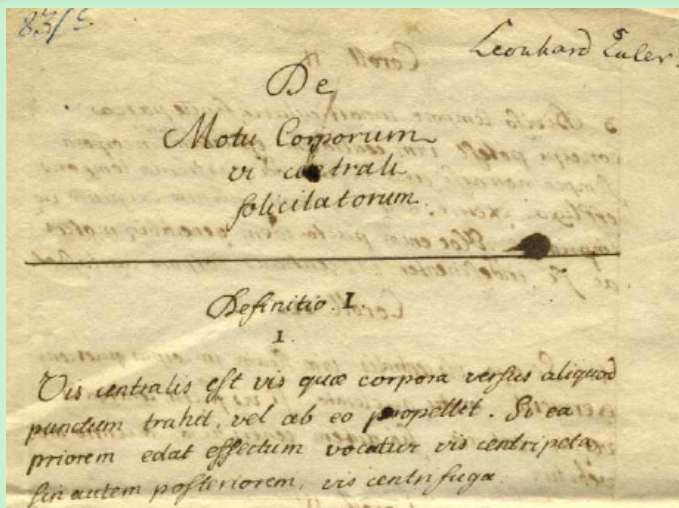 83/c
Leonhard Euler.
De
Motu Corporum
vi centrali
solicitatorum.
Definitio. I.
1.
Vis centralis est vis quæ corpora versus aliquod
punctum trahit, vel ab eo propellit. Si ea
priorem edat effectum vocatur vis centripeta
sin autem posteriorem, vis centrifuga.